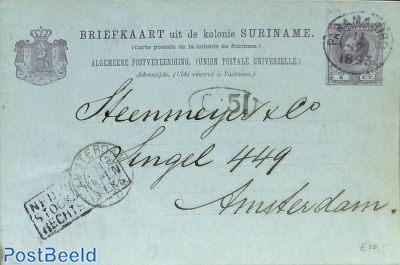 BRIEFKAART uit de kolonie SURINAME.
(Carte postale de la colonie de Suriname.)
ALGEMEENE POSTVEREENIGING. (UNION POSTALE UNIVERSELLE.)
Adreszijde. (Côté réservé à l'adresse.)
PARAMARIBO
1893
Steenmeijer & Co
Singel 449
Amsterdam.
AMSTERDAM
€20,-
PostBeeld